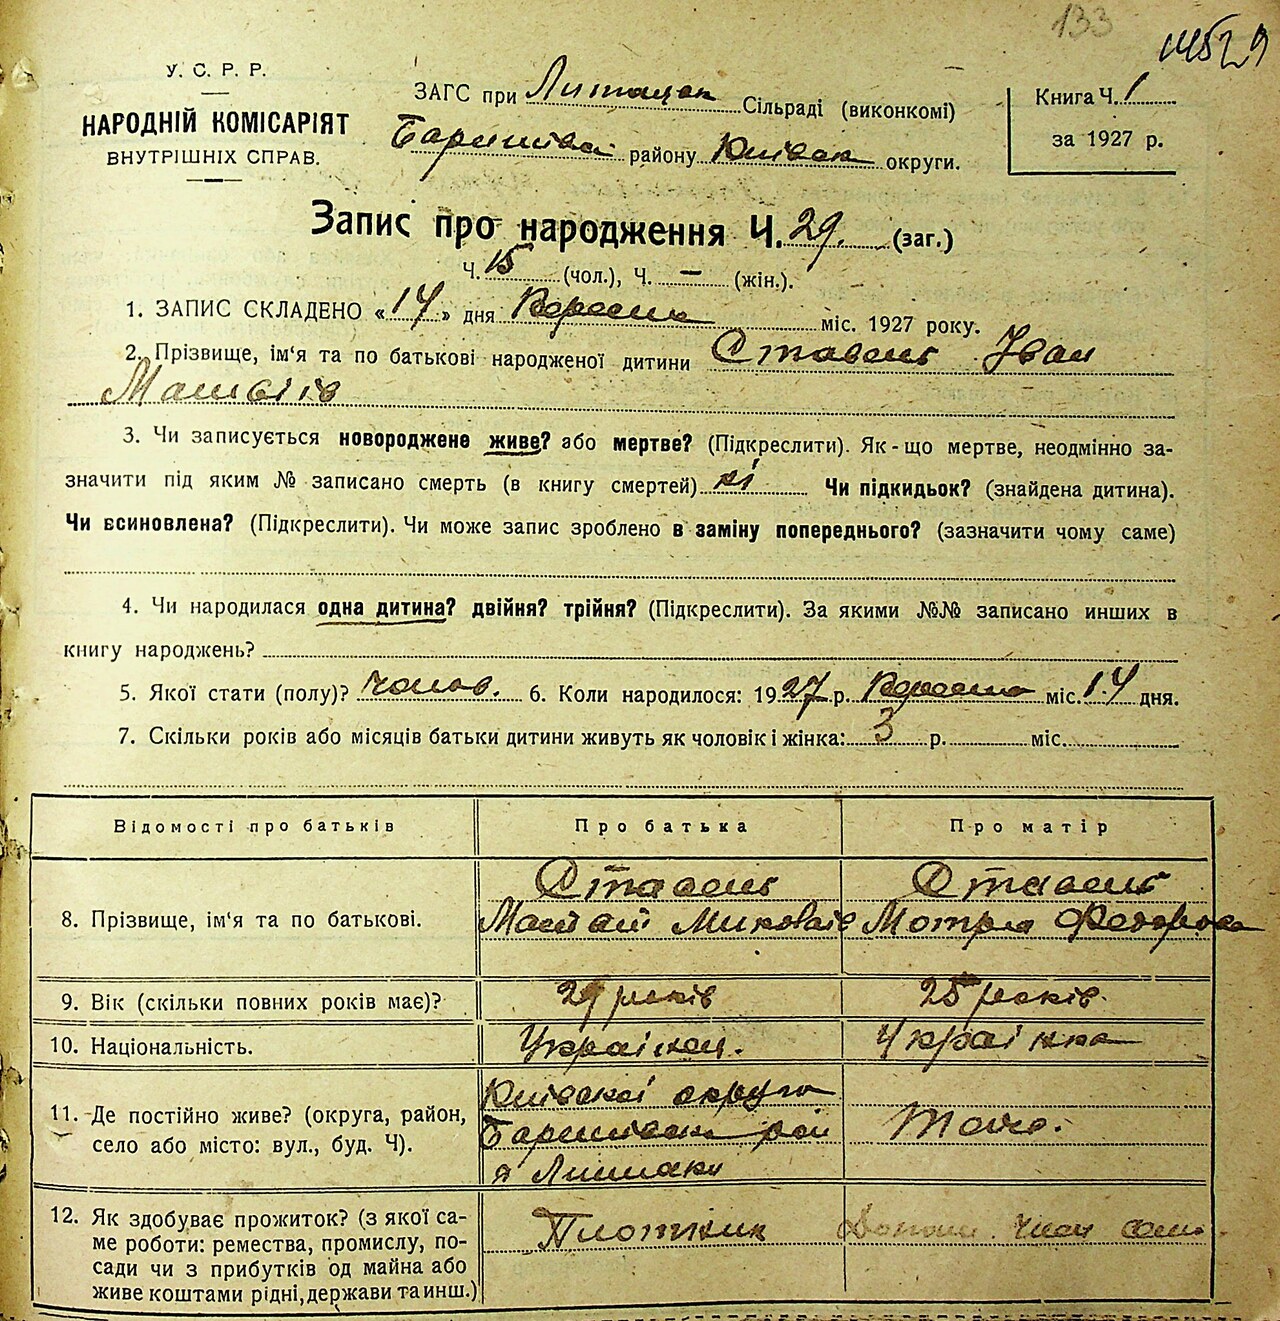 133
14529
У. С. Р. Р.
НАРОДНІЙ КОМІСАРІЯТ
ВНУТРІШНІХ СПРАВ.
ЗАГС при Литацьк Сільраді (виконкомі)
Баришівсь району Київськ округи.
Книга Ч. 1
за 1927 р.
Запис про народження Ч. 29. (заг.)
Ч. 15 (чол.), Ч. — (жін.).
1. ЗАПИС СКЛАДЕНО «14» дня Вересня міс. 1927 року.
2. Прізвище, ім‘я та по батькові народженої дитини Ставень Іван
Матвіїв
3. Чи записується новороджене живе? або мертве? (Підкреслити). Як-що мертве, неодмінно за-
значити під яким № записано смерть (в книгу смертей) ні Чи підкидьок? (знайдена дитина).
Чи всиновлена? (Підкреслити). Чи може запис зроблено в заміну попереднього? (зазначити чому саме)
4. Чи народилася одна дитина? двійня? трійня? (Підкреслити). За якими №№ записано инших в
книгу народжень?
5. Якої стати (полу)? чолов. 6. Коли народилося: 1927 р. Вересня міс. 14 дня.
7. Скільки років або місяців батьки дитини живуть як чоловік і жінка: 3 р. міс.
Відомості про батьків Про батька Про матір
8. Прізвище, ім‘я та по батькові. Ставень Ставень
Матвій Миколаїв Мотря Федорова
9. Вік (скільки повних років має)? 29 років 25 років.
10. Національність. Українец. Українка
11. Де постійно живе? (округа, район, село або місто: вул., буд. Ч). Київської округи
Баришівськ рай Тоже.
Лишаки
12. Як здобуває прожиток? (з якої са- Плотник член сем.
ме роботи: ремества, промислу, по-
сади чи з прибутків од майна або
живе коштами рідні, держави та инш.)